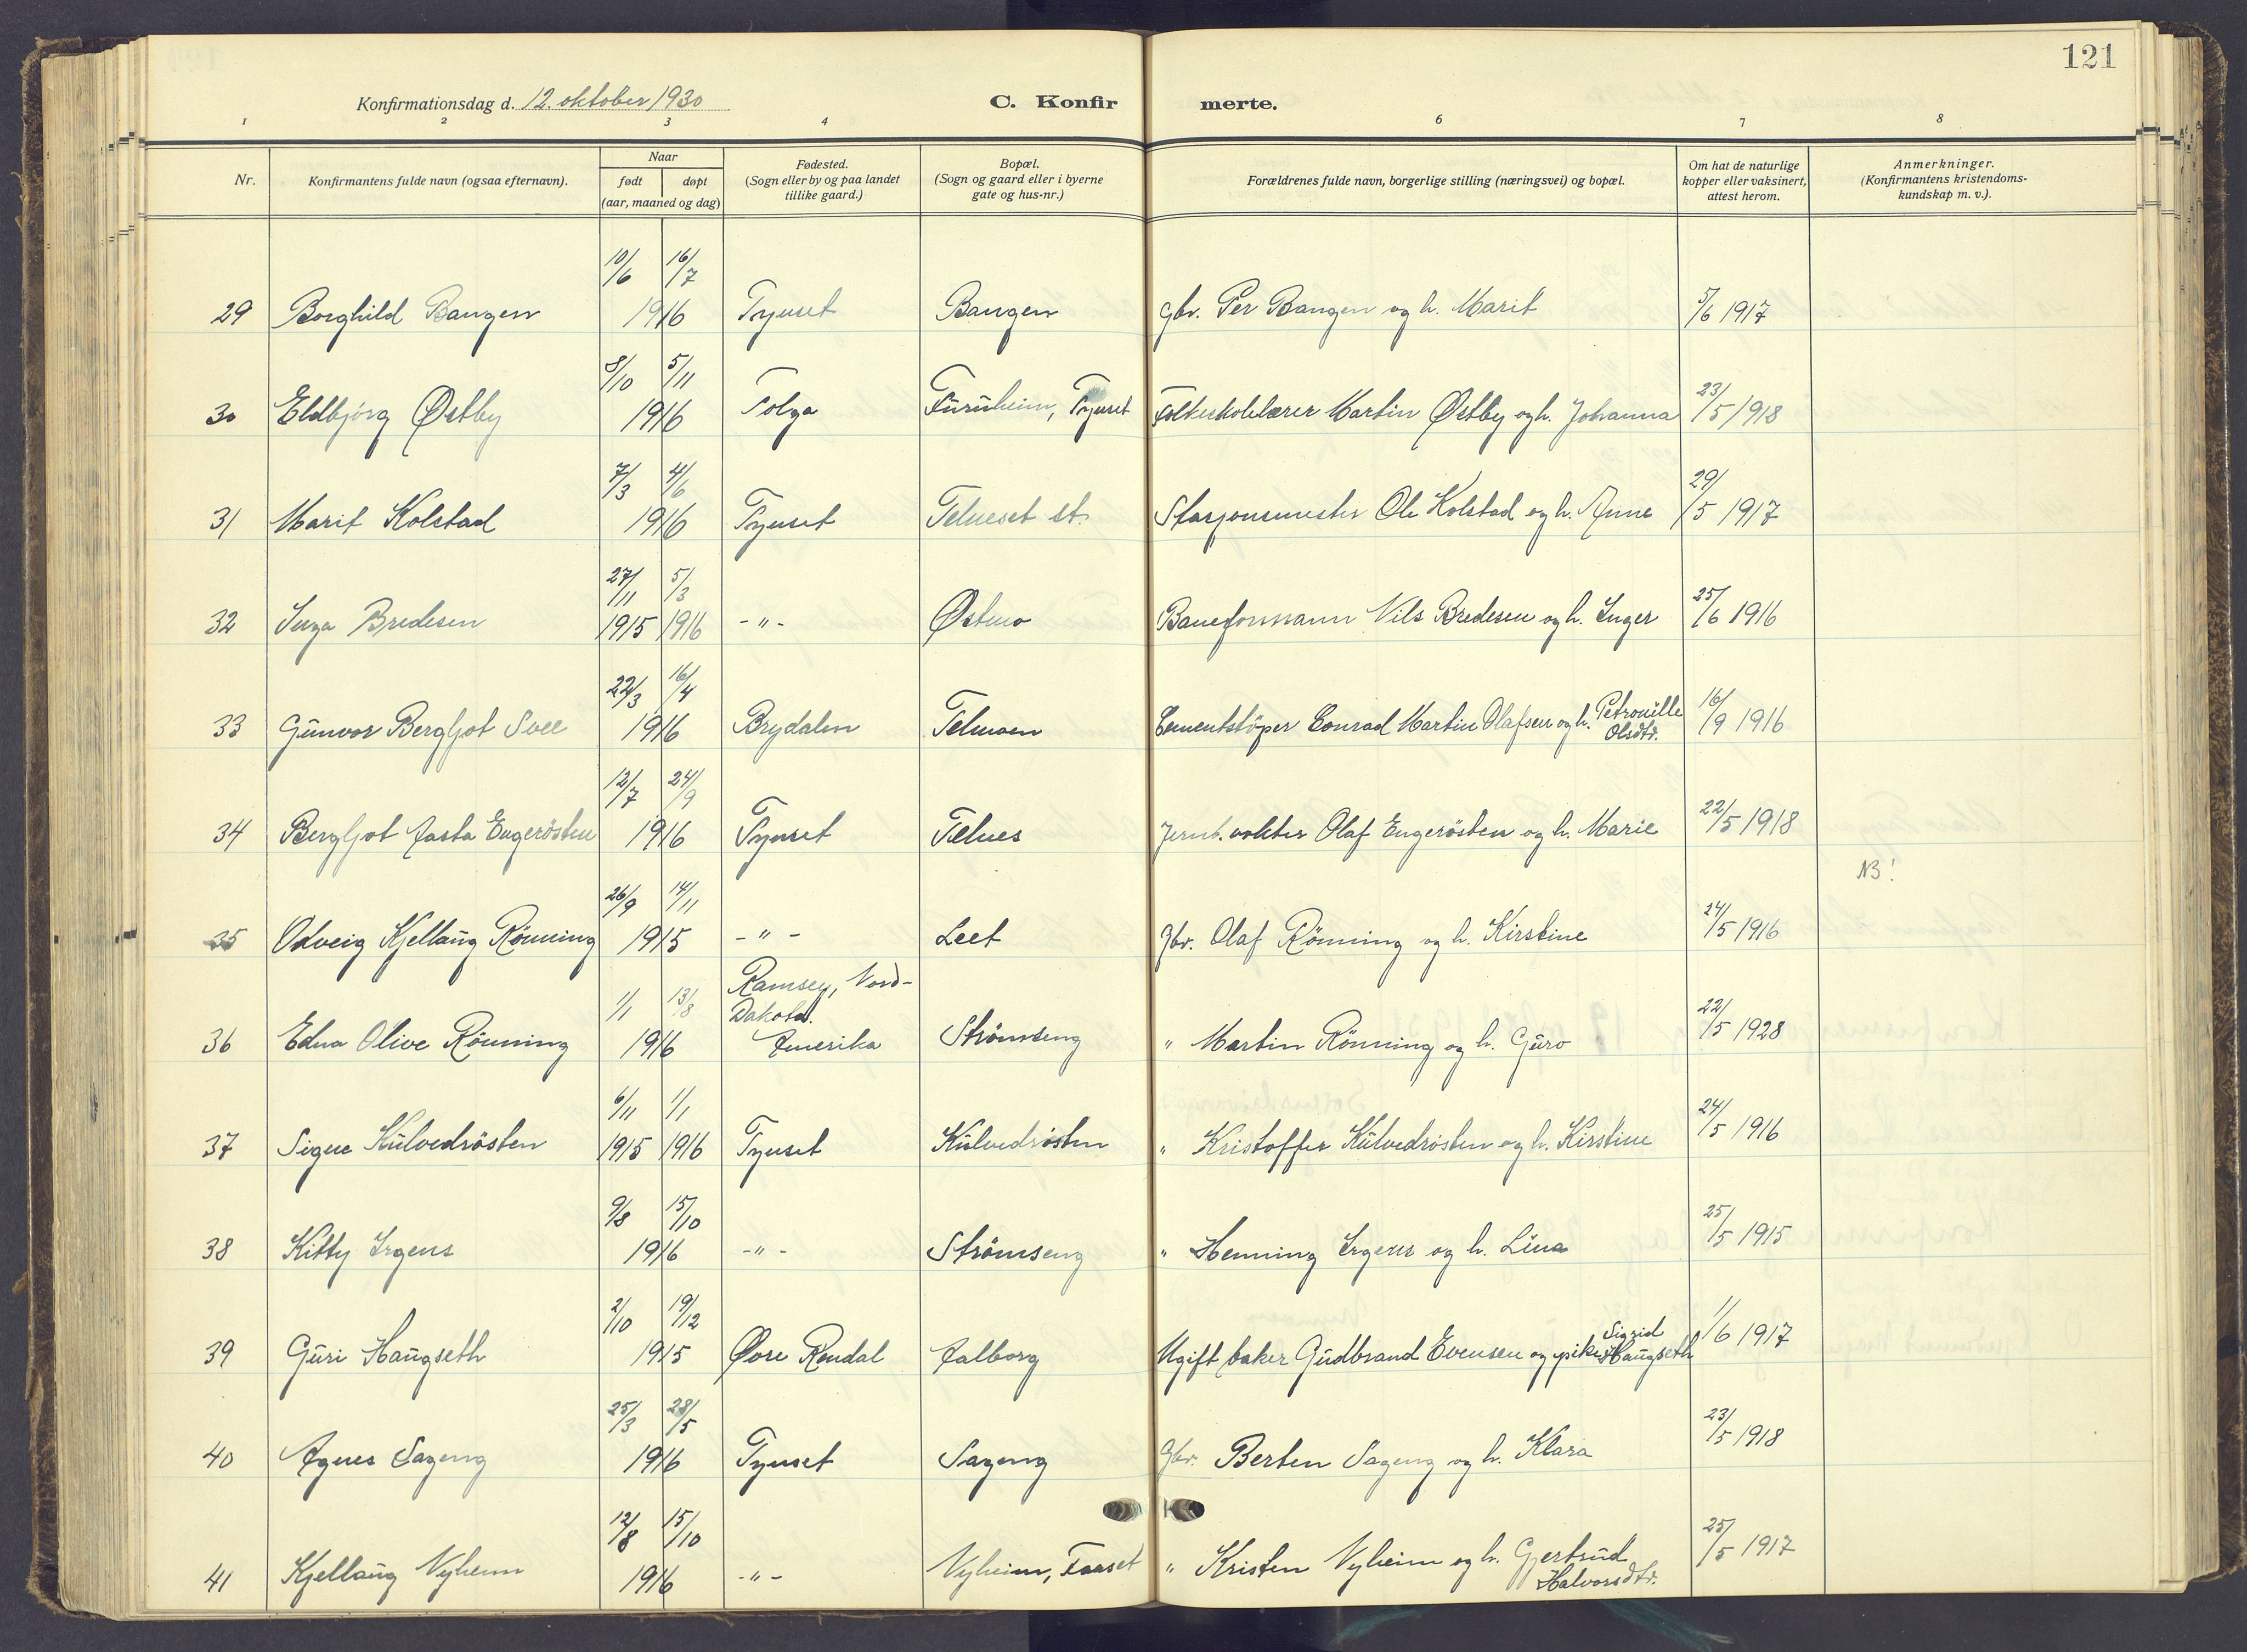 121
Konfirmationsdag d. 12. oktober 1930
C. Konfirmerte.
1 2 3 4 6 7 8
Nr. Konfirmantens fulde navn (ogsaa efternavn). Naar født døpt (aar, maaned og dag) Fødested. (Sogn eller by og paa landet tillike gaard.) Bopæl. (Sogn og gaard eller i byerne gate og hus-nr.) Forældrenes fulde navn, borgerlige stilling (næringsvei) og bopæl. Om hat de naturlige kopper eller vaksinert, attest herom. Anmerkninger. (Konfirmantens kristendoms-kundskap m. v.).
29 Borghild Bangen 10/6 16/7 1916 Tynset Bangen Gbr. Per Bangen og h. Marit 5/6 1917
30 Eldbjörg Østby 8/10 5/11 1916 Tolga Furuheim, Tynset Folkeskolelærer Martin Østby og h. Johanna 23/5 1918
31 Marit Kolstad 7/3 4/6 1916 Tynset Telneset st. Stasjonsmester Ole Kolstad og h. Anne 29/5 1917
32 Inga Bredesen 27/11 1915 5/3 1916 -"- Østmo Baneformann Nils Bredesen og h. Inger 25/6 1916
33 Gunvor Bergljot Svee 22/3 16/4 1916 Brydalen Telmoen Cementstöper Conrad Martin Olafsen og h. Petronille Olsdtr. 16/9 1916
34 Bergljot Aasta Engerösten 12/7 24/9 1916 Tynset Telnes Jernb.vokter Olaf Engerösten og h. Marie 22/5 1918
NB!
35 Oddveig Kjellaug Rönning 26/9 14/11 1915 -"- Leet Gbr. Olaf Rönning og h. Kirstine 24/5 1916
36 Edna Olive Rönning 1/1 13/8 1916 Ramsey, Nord-Dakota. Amerika Strömseng " Martin Rönning og h. Guro 22/5 1928
37 Signe Kulvedrösten 6/11 1915 1/1 1916 Tynset Kulvedrösten " Kristoffer Kulvedrösten og h. Kirstine 24/5 1916
38 Kitty Irgens 9/8 15/10 1916 -"- Strömseng " Henning Irgens og h. Lina 25/5 1915
39 Guri Haugseth 2/10 19/12 1915 Øvre Rendal Aalborg Ugift baker Gudbrand Evensen og pike Sigrid Haugseth 1/6 1917
40 Agnes Sageng 25/3 28/5 1916 Tynset Sageng Gbr. Berten Sageng og h. Klara 23/5 1918
41 Kjellaug Nyheim 12/8 15/10 1916 -"- Nyheim, Faaset " Kristen Nyheim og h. Gjertrud Halvorsdtr. 25/5 1917